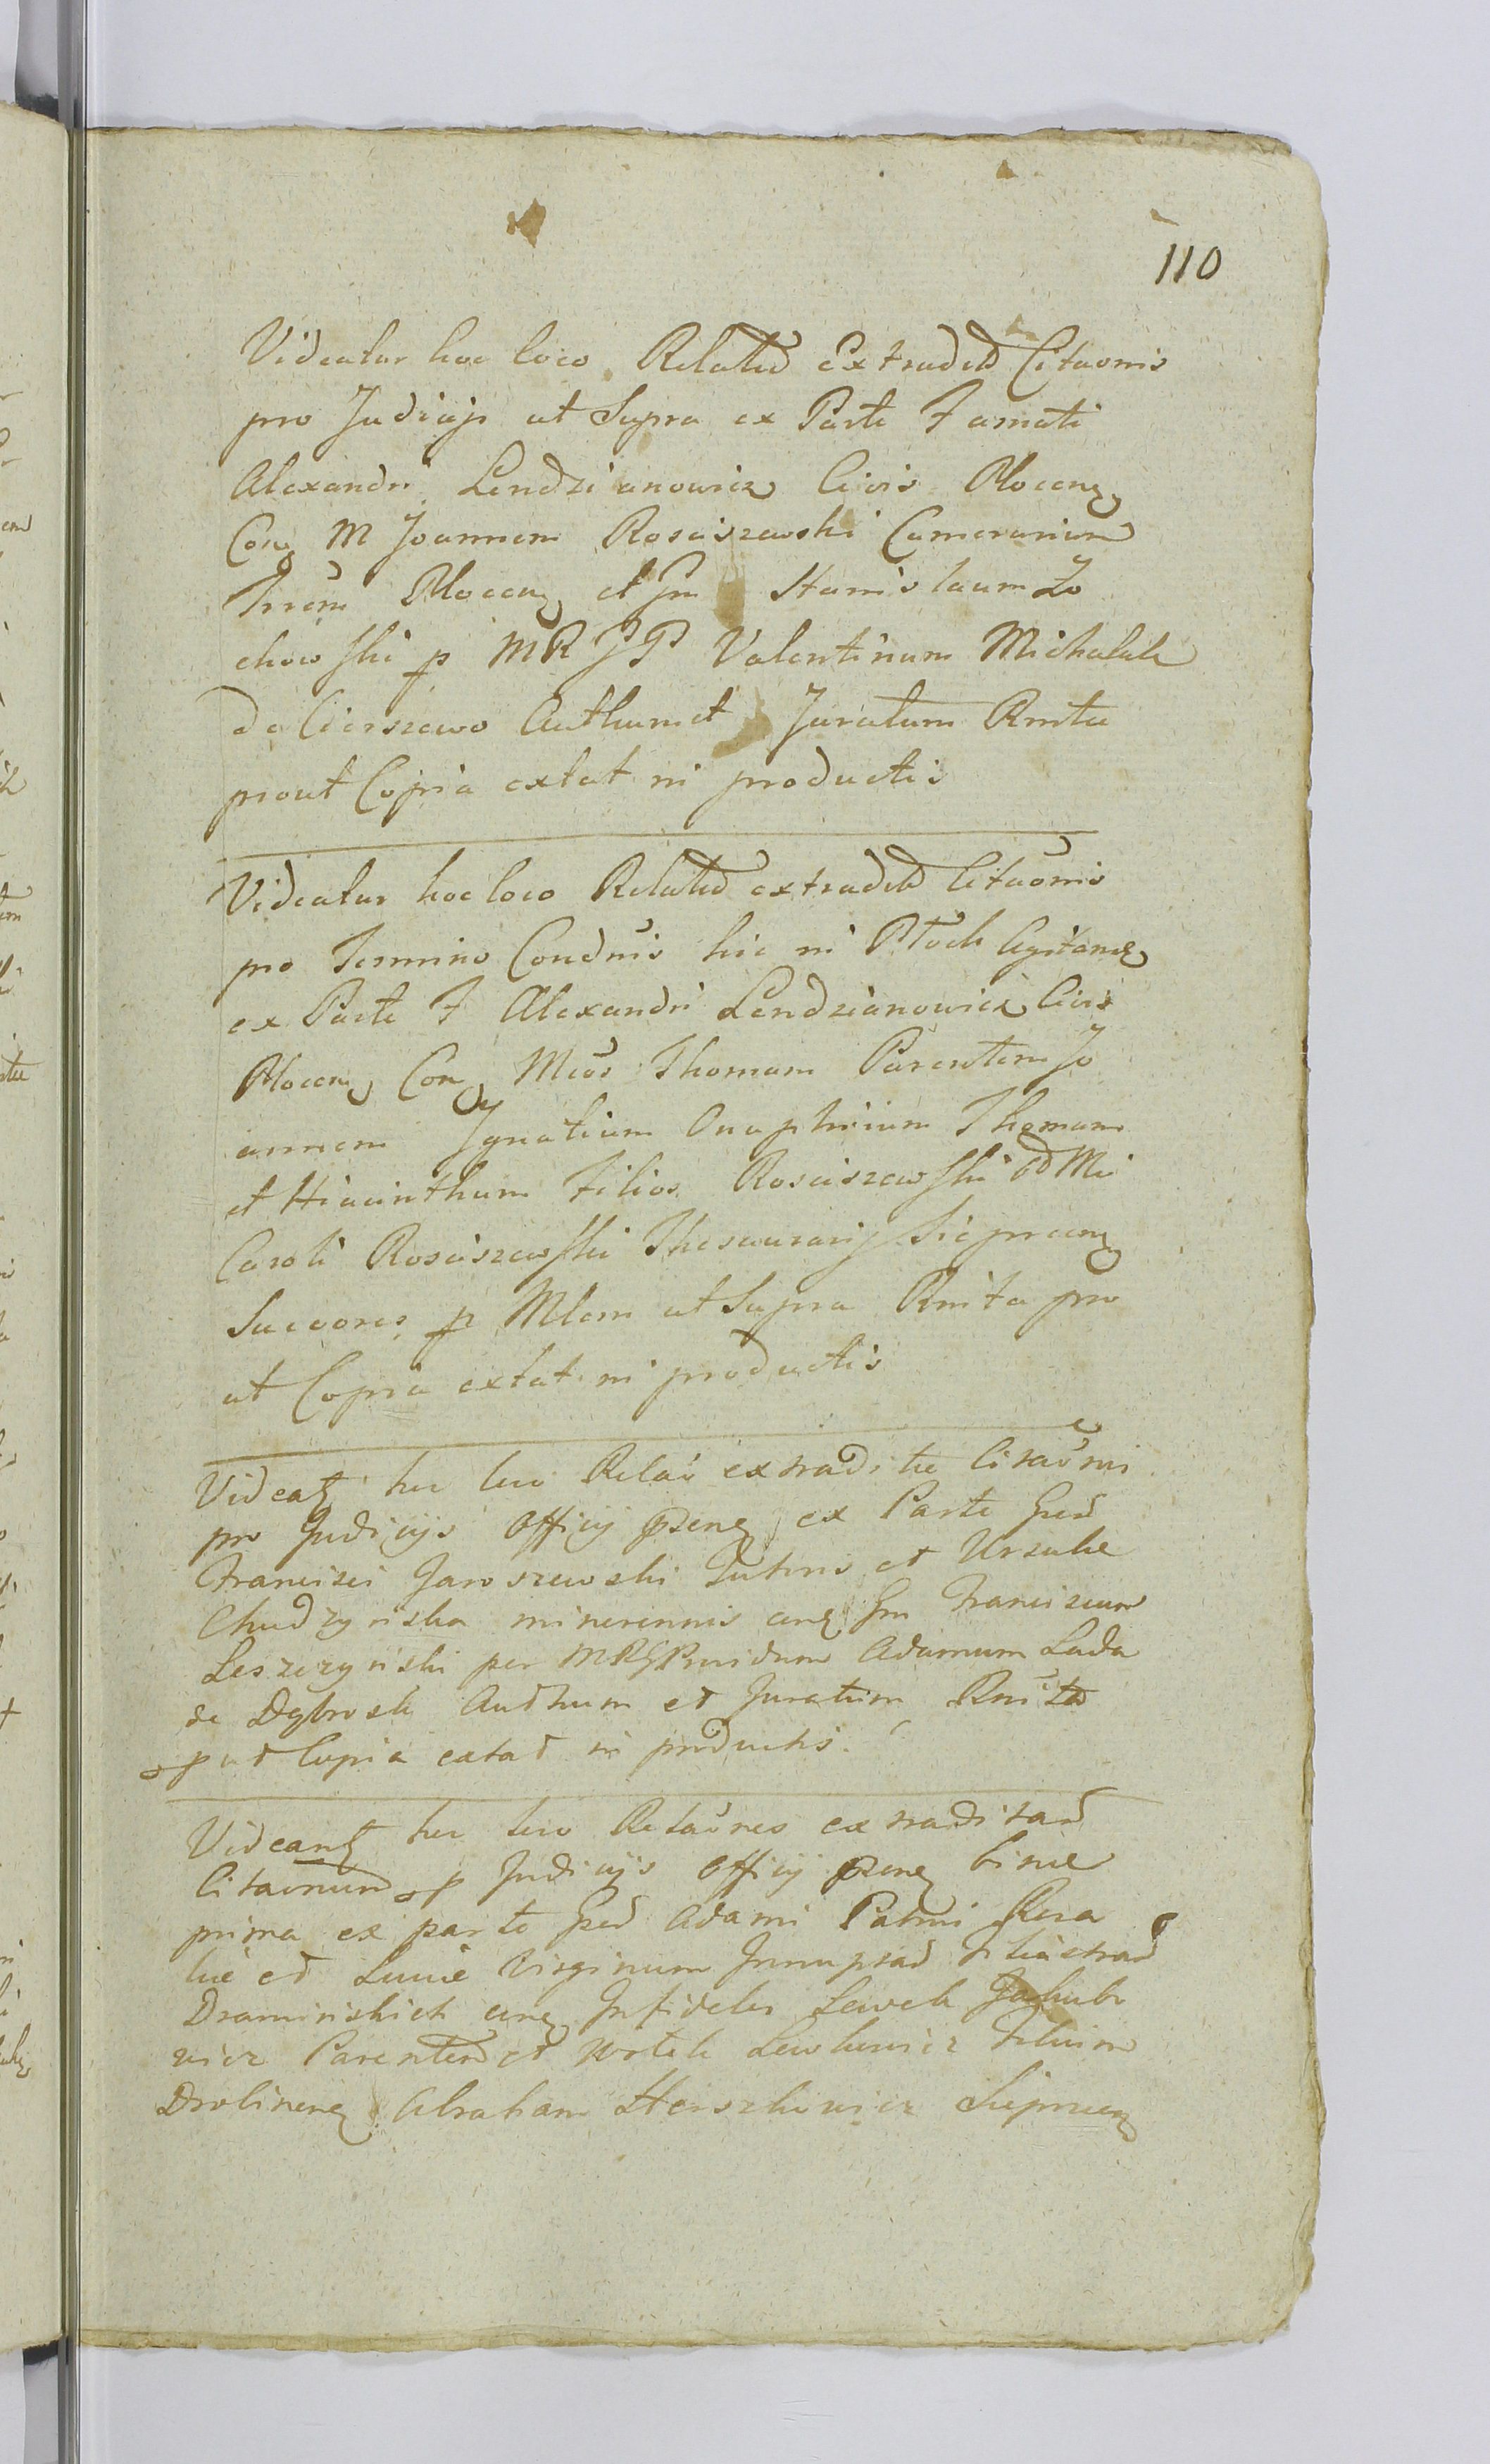 110
Videatur hoc loco Relatio extradit Citaonis
pro Judicijs ut Supra ex Parte Famati
Alexandri Lendzianowicz Civis Plocen
Con M Joannem Rosciszewski Camerarium
Trrem Plocen et Gm Stanislaum Zo
chowski p MR JP Valentinum Michalak
de Cierszewo Authum et Juratum Rnita
prout Copia extat in productis
Videatur hoc loco Relatio extradit Citaonis
pro Termino Condnis hic in Płock Agitan
ex Parte F Alexandri Lendzianowicz Civis
Plocen Con Mcos Thomam Parentem Jo
annem Ignatium Onuphrium Thomam
et Hiacinthum Filios Rosciszewski Mci
Caroli Rosciszewski Thesaurarij Sieprcen
Succores p Mlem ut Supra Rnita pro
ut Copia extat in productis
Videat hic loco Relao extradite Citaonis
pro Judicijs Officij ex Parte Gsd
Francisci Jaroszewski Tutoris et Ursulae
Chudzynska minorennis con Gm Franciscum
Leszczynski per MRG Providum Adamum Lada
de Dębrosk Authum et Juratum Rnita
put Copia extat in productis.
Videant hic loco Relaones extraditar
Citaonum p Judicijs Officij binae
prima ex parte Gsd Adami Patrui Rosa
liae et Lucie Virginum Innuptar Filiastrar
Draminskich con Infideles Lewek Jakubo
wicz Parentem et Wolek Lewkowicz Filium
Drobinen Abraham Herszkowicz Sieprcen